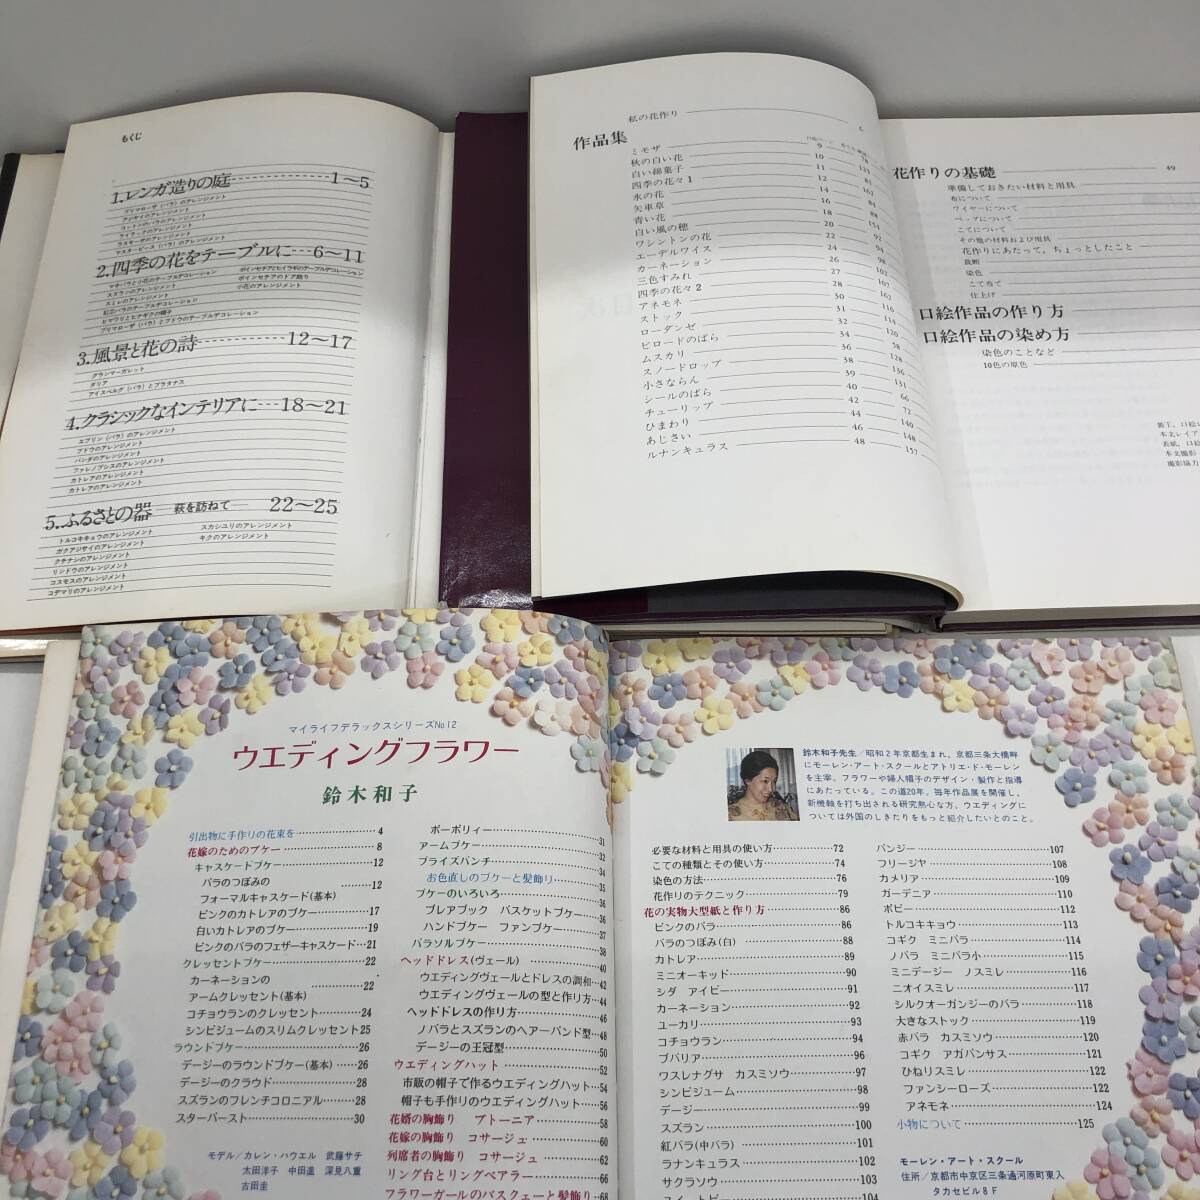 もくじ
1.レンガ造りの庭 1〜5
プリマローザ(バラ)のアレンジメント
アジサイのアレンジメント
コットンのバラのアレンジメント
ライラックのアレンジメント
2.四季の花をテーブルに 6〜11
マキバラと小花のテーブルデコレーション
スズランのアレンジメント
スミレのアレンジメント
紅芯バラのテーブルデコレーション
ヒマワリとヒナギクの帽子
プリマローザ(バラ)とブドウのテーブルデコレーション
ポインセチアとヒイラギのテーブルデコレーション
ポインセチアのドア飾り
小花のアレンジメント
3.風景と花の詩 12〜17
グランマーガレット
ダリア
アイスベルグ(バラ)とプラタナス
4.クラシックなインテリアに 18〜21
エブリン(バラ)のアレンジメント
ブドウのアレンジメント
バンダのアレンジメント
ファレノプシスのアレンジメント
カトレアのアレンジメント
5.ふるさとの器 萩を訪ねて 22〜25
トルコキキョウのアレンジメント
ガクアジサイのアレンジメント
クチナシのアレンジメント
リンドウのアレンジメント
コスモスのアレンジメント
コデマリのアレンジメント
スカシユリのアレンジメント
キクのアレンジメント
私の花作り 6
作品集
ミモザ 9 78
秋の白い花 10
白い綿菓子 11
四季の花々1 12
水の花 14
矢車草 16 84
青い花 18
白い風の穂 20 154
ワシントンの花 22 92
エーデルワイス 24 94
カーネーション 26 98
三色すみれ 28 102
四季の花々2 28 107
アネモネ 30 162
ストック 31 110
ローダンゼ 32 114
ビロードのばら 34 120
ムスカリ 36 58
スノードロップ 38 128
小さならん 39 136
シールのばら 40 131
チューリップ 42 66
ひまわり 44 72
あじさい 46 140
ルナンキュラス 48 148
157
花作りの基礎 49
準備しておきたい材料と用具
布について
ワイヤーについて
ペップについて
こてについて
その他の材料および用具
花作りにあたって、ちょっとしたこと
裁断
染色
こて当て
仕上げ
口絵作品の作り方
口絵作品の染め方
染色のことなど
10色の原色
本文レイア
本文撮影
撮影協力
マイライフデラックスシリーズNo.12
ウエディングフラワー
鈴木和子
引出物に手作りの花束を 4
花嫁のためのブケー 8
キャスケードブケー 12
バラのつぼみの
フォーマルキャスケード(基本) 12
ピンクのカトレアのブケー 17
白いカトレアのブケー 19
ピンクのバラのフェザーキャスケード 21
クレッセントブケー 22
カーネーションの
アームクレッセント(基本) 22
コチョウランのクレッセント 24
シンビジュームのスリムクレッセント 25
ラウンドブケー 26
デージーのラウンドブケー(基本) 26
デージーのクラウド 28
スズランのフレンチコロニアル 28
スターバースト 30
モデル/カレン・ハウエル 武藤サチ
太田洋子 中田道 深見八重
古田圭
ポーポリィー 31
アームブケー 32
プライズバンチ 34
お色直しのブケーと髪飾り 35
ブケーのいろいろ 36
プレアブック バスケットブケー 36
ハンドブケー ファンブケー 37
パラソルブケー 38
ヘッドドレス(ヴェール) 40
ウエディングヴェールとドレスの調和 42
ウエディングヴェールの型と作り方 44
ヘッドドレスの作り方 46
ノバラとスズランのヘアーバンド型 48
デージーの王冠型 50
ウエディングハット 52
市販の帽子で作るウエディングハット 54
帽子も手作りのウエディングハット 56
花婿の胸飾り ブトーニア 58
花嫁の胸飾り コサージュ 60
列席者の胸飾り コサージュ 62
リング台とリングベアラー 66
フラワーガールのバスケットと髪飾り 68
鈴木和子先生/昭和2年京都生まれ。京都三条大橋畔
にモーレン・アート・スクールとアトリエ・ド・モーレン
を主宰、フラワーや婦人帽子のデザイン・製作と指導
にあたっている。この道20年。毎年作品展を開催し、
新機軸を打ち出される研究熱心な方。ウエディングに
ついては外国のしきたりをもっと紹介したいとのこと。
必要な材料と用具の使い方 72
こての種類とその使い方 74
染色の方法 76
花作りのテクニック 79
花の実物大型紙と作り方 86
ピンクのバラ 86
バラのつぼみ(白) 88
カトレア 89
ミニオーキッド 90
シダ アイビー 91
カーネーション 92
ユーカリ 93
コチョウラン 94
ブバリア 96
ワスレナグサ カスミソウ 97
シンビジューム 98
デージー 99
スズラン 100
紅バラ(中バラ) 101
ラナンキュラス 102
サクラソウ 103
パンジー 107
フリージヤ 108
カメリア 109
ガーデニア 110
ポピー 112
トルコキキョウ 113
コギク ミニバラ 114
ノバラ ミニバラ小 115
ミニデージー ノスミレ 116
ニオイスミレ 117
シルクオーガンジーのバラ 118
大きなストック 119
赤バラ カスミソウ 120
コギク アガパンサス 121
ひねりスミレ 122
ファンシーローズ 122
アネモネ 124
小物について 125
モーレン・アート・スクール
住所/京都市中京区三条通河原町東入
タカセビル8F